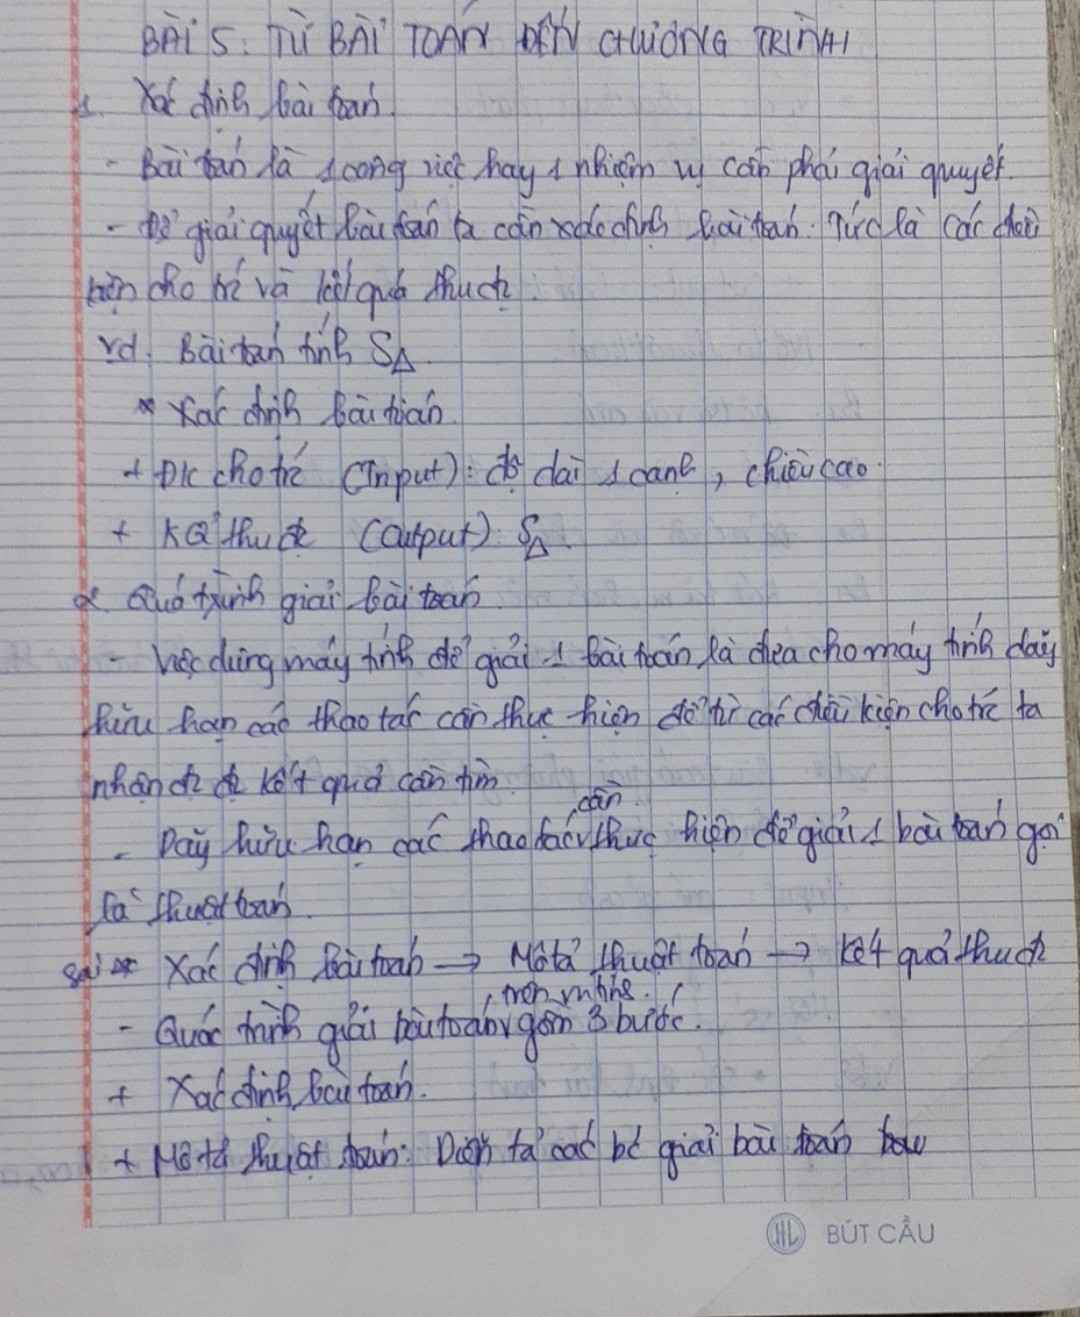 BÀI 5: TỪ BÀI TOÁN ĐẾN CHƯƠNG TRÌNH
1. Xác định bài toán.
- Bài toán là 1 công việc hay 1 nhiệm vụ cần phải giải quyết.
- Để giải quyết bài toán ta cần xác định bài toán. Tức là các điều
kiện cho trc và kết quả thu đc
vd. Bài toán tính S△.
* Xác định bài toán.
+ ĐK cho trc (Input): độ dài 1 cạnh, chiều cao.
+ KQ thu đc (Output): S△.
2. Quá trình giải bài toán.
- Việc dùng máy tính để giải 1 bài toán là đưa cho máy tính dãy
hữu hạn các thao tác cần thực hiện để từ các điều kiện cho trc ta
nhận đc kết quả cần tìm.
- Dãy hữu hạn các thao tác cần thực hiện để giải 1 bài toán gọi
là thuật toán.
Xác định bài toán → Mô tả thuật toán → kết quả thu đc
- Quá trình giải bài toán trên m tính gồm 3 bước.
+ Xác định bài toán.
+ Mô tả thuật toán: Diễn tả các bc giải bài toán
HL BÚT CẦU